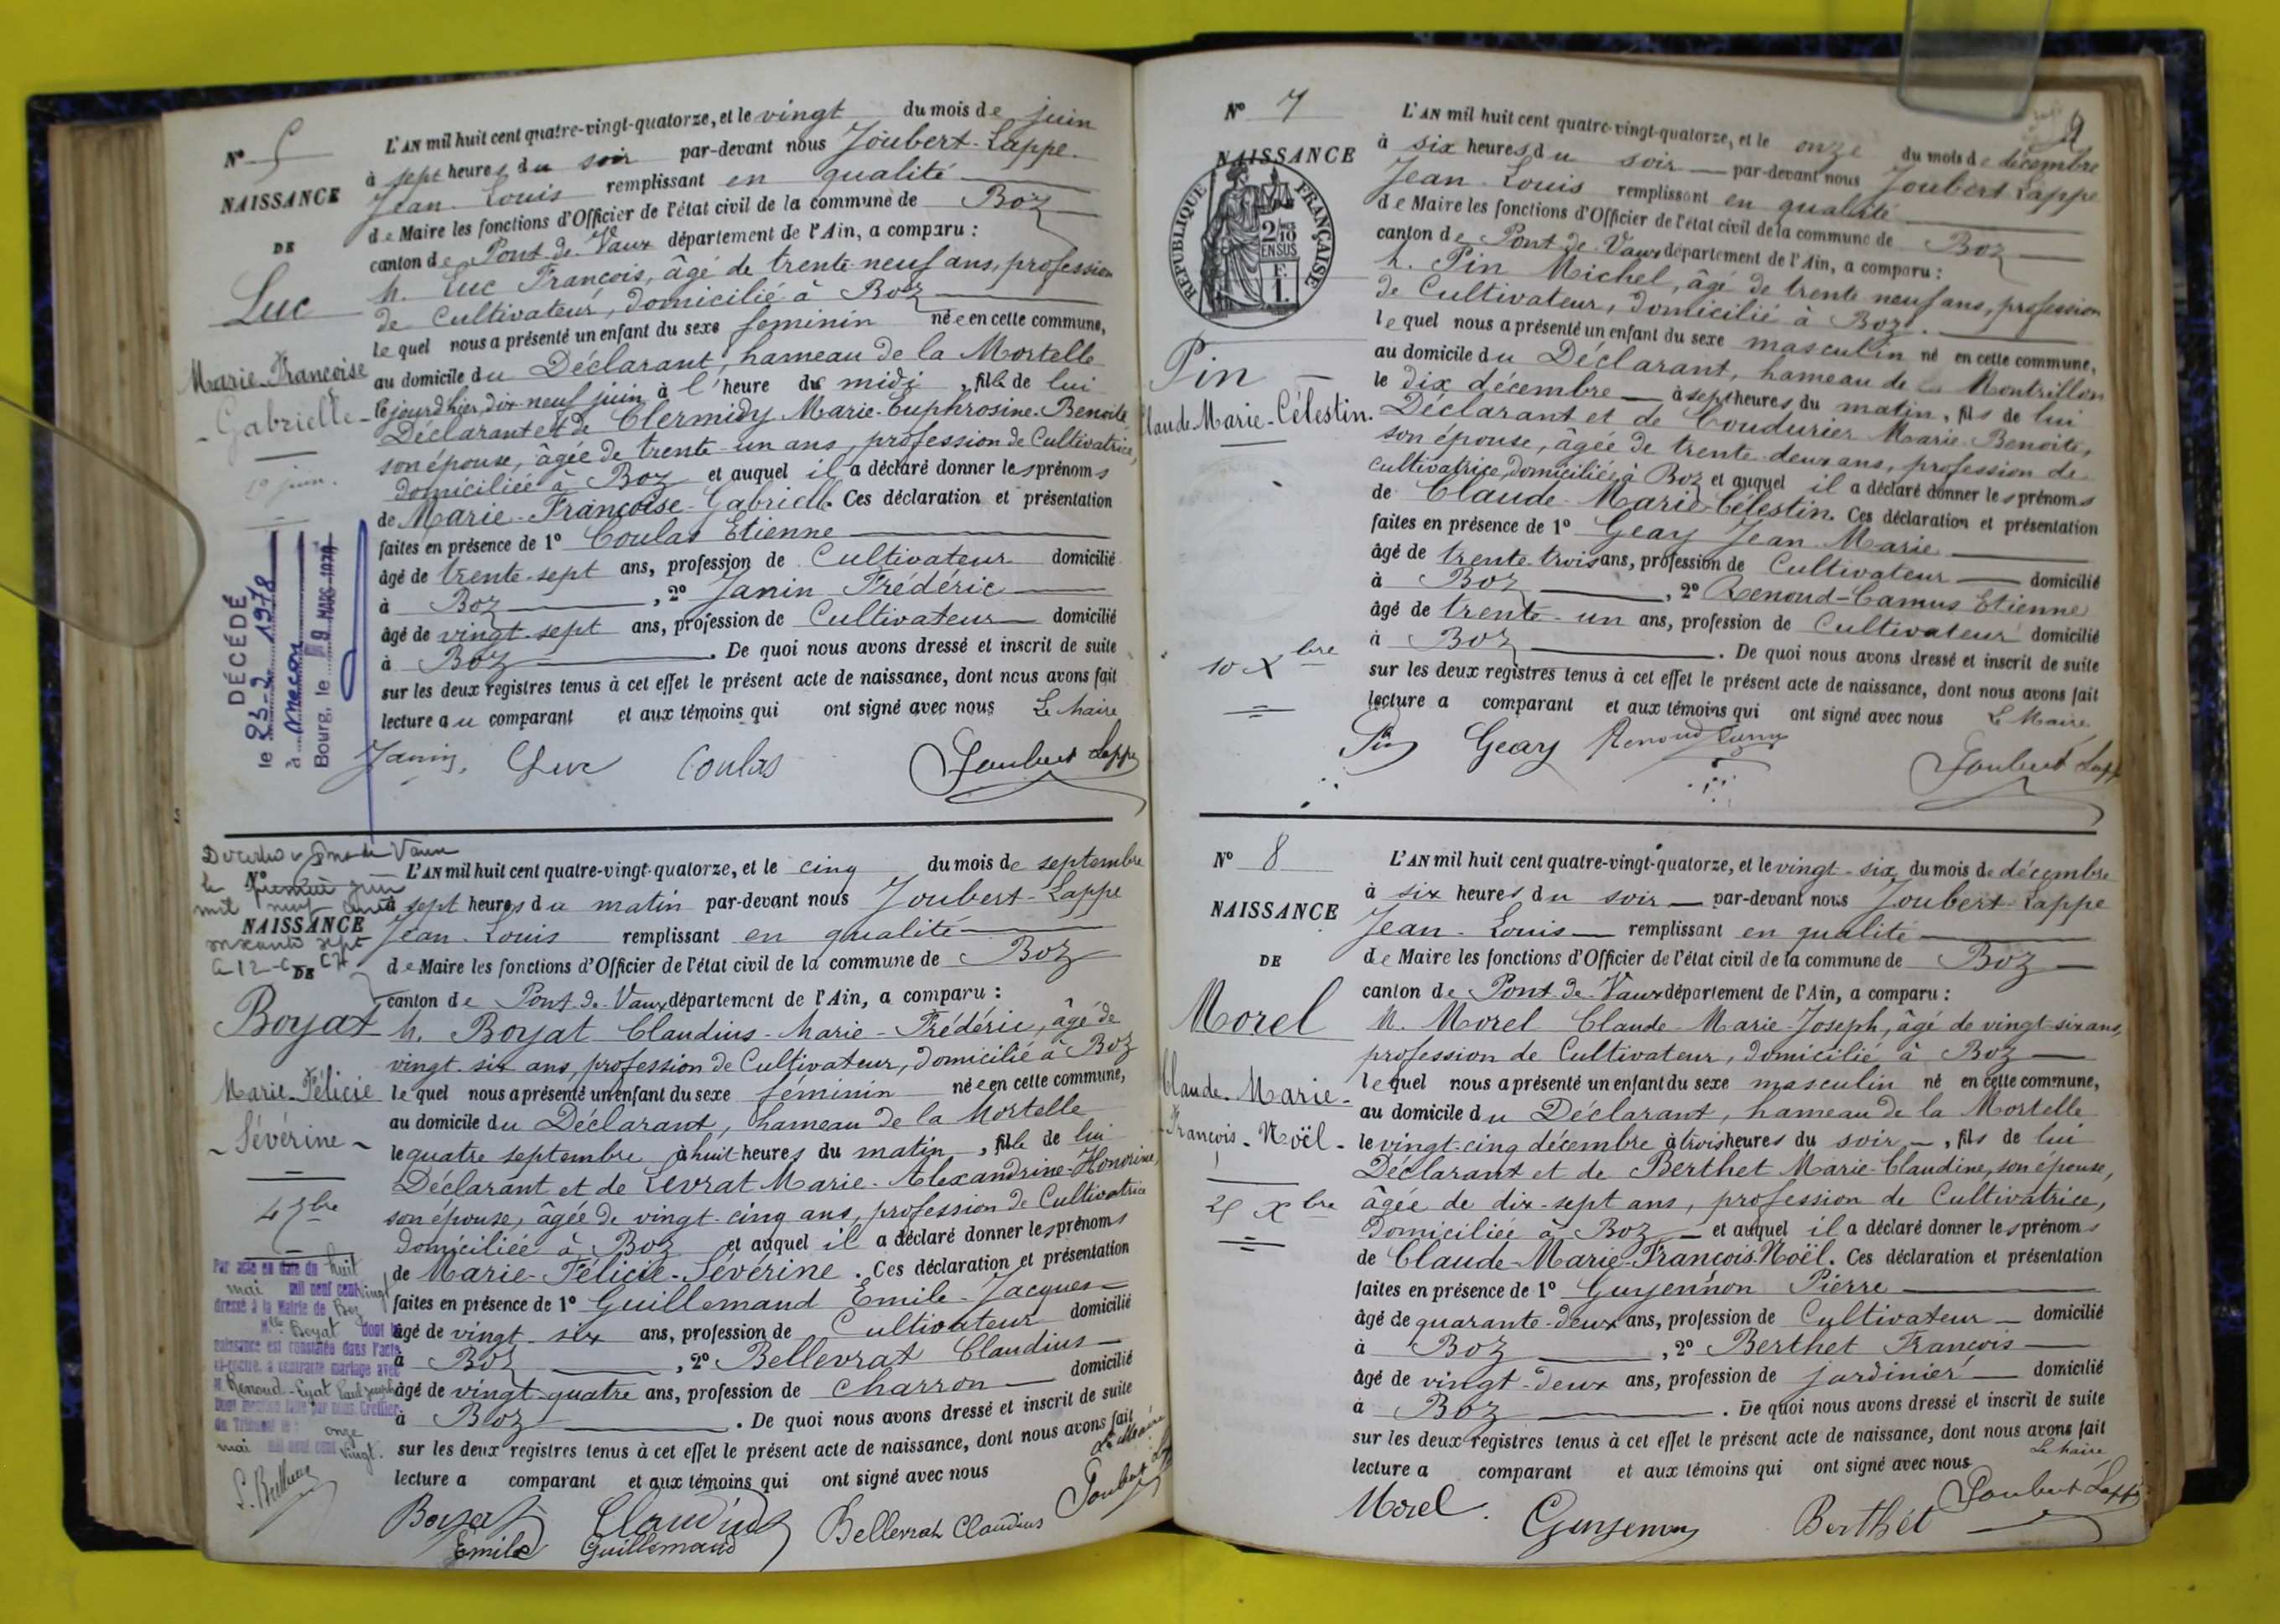 N° 5
NAISSANCE
DE
Luc
Marie-Françoise
- Gabrielle -
DÉCÉDÉ
le 23-2 1978
à Macon
Bourg, le 9 MARS 1978
L'AN mil huit cent quatre-vingt-quatorze, et le vingt du mois de juin
à sept heures du soir par-devant nous Joubert-Lappe
Jean-Louis remplissant en qualité
de Maire les fonctions d'Officier de l'état civil de la commune de Boz
canton de Pont-de-Vaux département de l'Ain, a comparu :
M. Luc François, âgé de trente-neuf ans, profession
de Cultivateur, domicilié à Boz
lequel nous a présenté un enfant du sexe féminin née en cette commune,
au domicile du Déclarant, hameau de la Mortelle
le jourd'hier dix-neuf juin à l'heure de midi, fille de lui
Déclarant et de Clermidy Marie-Euphrosine-Benoite,
son épouse, âgée de trente-un ans, profession de Cultivatrice,
domiciliée à Boz et auquel il a déclaré donner les prénoms
de Marie-Françoise-Gabrielle. Ces déclaration et présentation
faites en présence de 1° Coulas Etienne
âgé de trente-sept ans, profession de Cultivateur domicilié
à Boz, 2° Janin Frédéric
âgé de vingt-sept ans, profession de Cultivateur domicilié
à Boz. De quoi nous avons dressé et inscrit de suite
sur les deux registres tenus à cet effet le présent acte de naissance, dont nous avons fait
lecture au comparant et aux témoins qui ont signé avec nous Le Maire
Janin, Luc Coulas Joubert Lappe
Pont de Vaux
le premier juin
mil neuf cent
soixante sept
N°
NAISSANCE
DE
Boyat
Marie-Félicie
- Sévérine -
4 7bre
Par acte en date du huit
mai mil neuf cent vingt
dressé à la Mairie de Boz
Mlle Boyat dont la
naissance est constatée dans l'acte
ci-contre, a contracté mariage avec
M. Renoud-Lyat Paul Joseph
Dont mention faite par nous, Greffier
du Tribunal le onze
mai mil neuf cent vingt.
L'AN mil huit cent quatre-vingt-quatorze, et le cinq du mois de septembre
à sept heures du matin par-devant nous Joubert-Lappe
Jean-Louis remplissant en qualité
de Maire les fonctions d'Officier de l'état civil de la commune de Boz
canton de Pont-de-Vaux département de l'Ain, a comparu :
M. Boyat Claudius-Marie-Frédéric, âgé de
vingt-six ans, profession de Cultivateur, domicilié à Boz
lequel nous a présenté un enfant du sexe féminin née en cette commune,
au domicile du Déclarant, hameau de la Mortelle
le quatre septembre à huit heures du matin, fille de lui
Déclarant et de Levrat Marie-Alexandrine-Honorine,
son épouse, âgée de vingt-cinq ans, profession de Cultivatrice
domiciliée à Boz et auquel il a déclaré donner les prénoms
de Marie-Félicie-Sévérine. Ces déclaration et présentation
faites en présence de 1° Guillemaud Emile-Jacques
âgé de vingt-six ans, profession de Cultivateur domicilié
à Boz, 2° Bellevrat Claudius
âgé de vingt-quatre ans, profession de charron domicilié
à Boz. De quoi nous avons dressé et inscrit de suite
sur les deux registres tenus à cet effet le présent acte de naissance, dont nous avons fait
lecture a comparant et aux témoins qui ont signé avec nous Le Maire
Boyat Claudius Bellevrat Claudius Joubert
Emile Guillemaud
9
N° 7
NAISSANCE
RÉPUBLIQUE FRANÇAISE
2/10 EN SUS
Pin
Claude-Marie-Célestin.
10 Xbre
L'AN mil huit cent quatre-vingt-quatorze, et le onze du mois de décembre
à six heures du soir par-devant nous Joubert-Lappe
Jean-Louis remplissant en qualité
de Maire les fonctions d'Officier de l'état civil de la commune de Boz
canton de Pont-de-Vaux département de l'Ain, a comparu :
M. Pin Michel, âgé de trente-neuf ans, profession
de Cultivateur, domicilié à Boz.
lequel nous a présenté un enfant du sexe masculin né en cette commune,
au domicile du Déclarant, hameau de Montrillon
le dix décembre à sept heures du matin, fils de lui
Déclarant et de Coudurier Marie-Benoite,
son épouse, âgée de trente-deux ans, profession de
cultivatrice, domiciliée à Boz et auquel il a déclaré donner les prénoms
de Claude-Marie-Célestin. Ces déclaration et présentation
faites en présence de 1° Geay Jean-Marie
âgé de trente-trois ans, profession de Cultivateur domicilié
à Boz, 2° Renoud-Camus Etienne
âgé de trente-un ans, profession de Cultivateur domicilié
à Boz. De quoi nous avons dressé et inscrit de suite
sur les deux registres tenus à cet effet le présent acte de naissance, dont nous avons fait
lecture a comparant et aux témoins qui ont signé avec nous Le Maire
Pin Geay Renoud Camus Joubert Lappe
N° 8
NAISSANCE
DE
Morel
Claude-Marie-
François-Noël-
25 Xbre
L'AN mil huit cent quatre-vingt-quatorze, et le vingt-six du mois de décembre
à six heures du soir par-devant nous Joubert-Lappe
Jean-Louis remplissant en qualité
de Maire les fonctions d'Officier de l'état civil de la commune de Boz
canton de Pont-de-Vaux département de l'Ain, a comparu :
M. Morel Claude-Marie-Joseph, âgé de vingt-six ans,
profession de Cultivateur, domicilié à Boz
lequel nous a présenté un enfant du sexe masculin né en cette commune,
au domicile du Déclarant, hameau de la Mortelle
le vingt-cinq décembre à trois heures du soir, fils de lui
Déclarant et de Berthet Marie-Claudine, son épouse,
âgée de dix-sept ans, profession de Cultivatrice,
domiciliée à Boz et auquel il a déclaré donner les prénoms
de Claude-Marie-François-Noël. Ces déclaration et présentation
faites en présence de 1° Guyennon Pierre
âgé de quarante-deux ans, profession de Cultivateur domicilié
à Boz, 2° Berthet François
âgé de vingt-deux ans, profession de jardinier domicilié
à Boz. De quoi nous avons dressé et inscrit de suite
sur les deux registres tenus à cet effet le présent acte de naissance, dont nous avons fait
lecture a comparant et aux témoins qui ont signé avec nous Le Maire
Morel. Guyennon Berthet Joubert Lappe